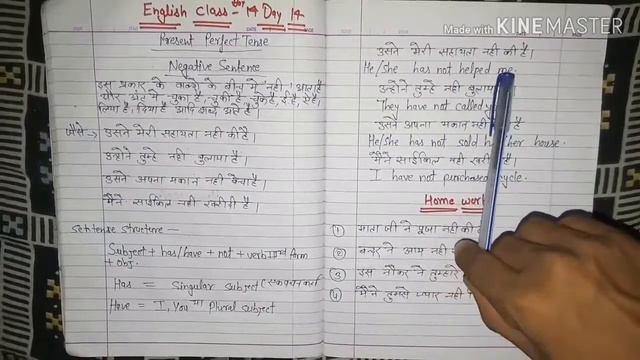 English class - Day 14
Present Perfect Tense
Negative Sentence
इस प्रकार के वाक्यो के बीच में नही । आता है
और अंत में चुका है, चुकी है, चुके है, ई है, ऐ है,
लिया है, दिया है आदि शब्द आते है ।
जैसे → उसने मेरी सहायता नही की है ।
उन्होने तुम्हे नही बुलाया है ।
उसने अपना मकान नही बेचा है ।
मैने साईकिल नही खरीदी है ।
Sentence structure —
Subject + has/have + not + verb IIIrd form
+ obj.
Has = Singular subject (एकवचन कर्ता
Have = I, You Plural subject
Made With KINEMASTER
उसने मेरी सहायता नही की है ।
He/She has not helped me.
उन्होने तुम्हे नही बुलाया
They have not called
उसने अपना मकान नही है
He/She has not sold his/her house.
मैने साईकिल नही खरीदी है ।
I have not purchased cycle.
Home work
① माता जी ने पूजा नही की
② बन्दर ने आम नही
③ इस नौकर ने तुम्हारे
④ मैने तुमसे प्यार नही